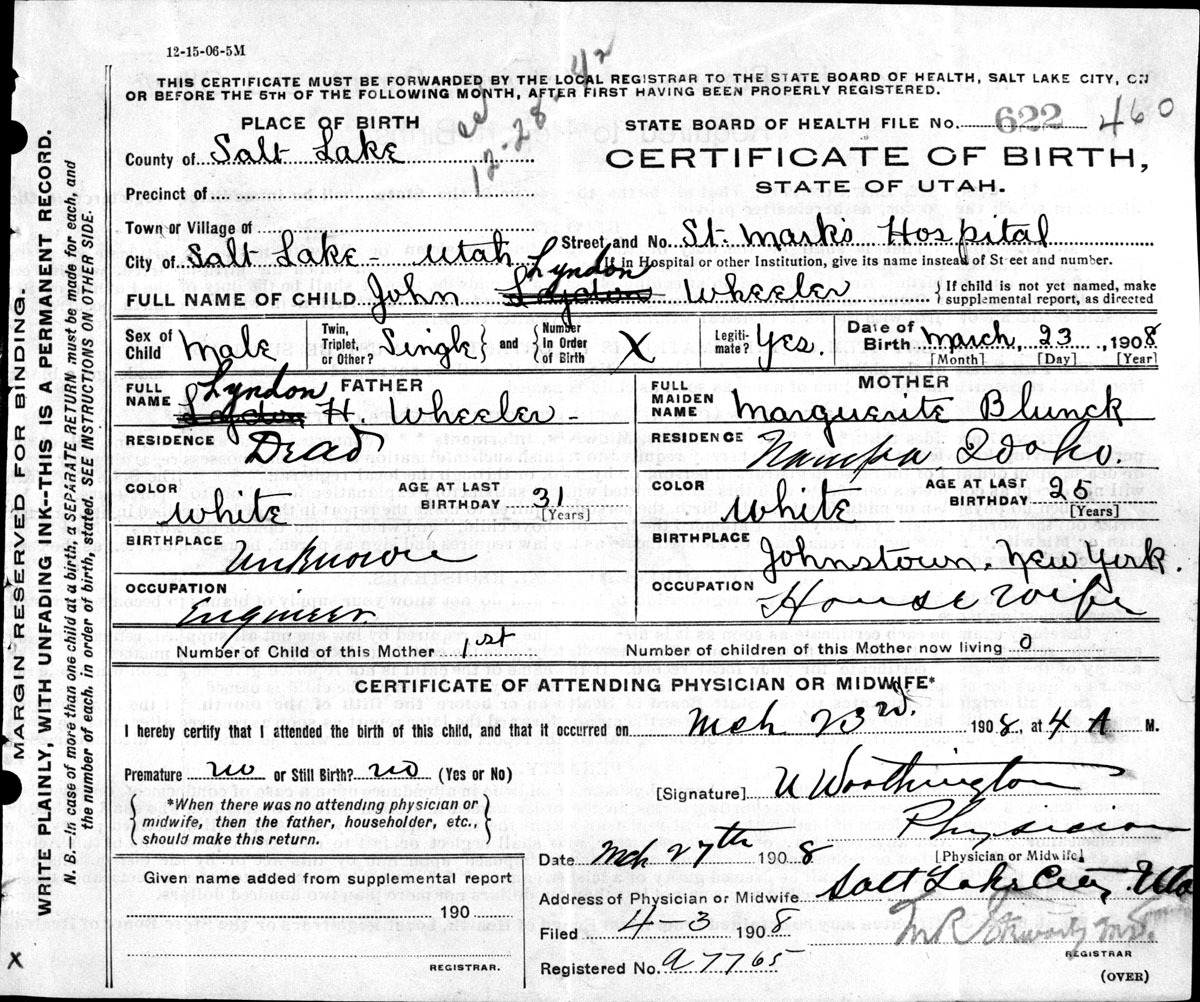 12-15-06-5M
THIS CERTIFICATE MUST BE FORWARDED BY THE LOCAL REGISTRAR TO THE STATE BOARD OF HEALTH, SALT LAKE CITY, ON
OR BEFORE THE 5TH OF THE FOLLOWING MONTH, AFTER FIRST HAVING BEEN PROPERLY REGISTERED.
12-28-42
PLACE OF BIRTH
STATE BOARD OF HEALTH FILE No. 622 460
County of Salt Lake
CERTIFICATE OF BIRTH,
STATE OF UTAH.
Precinct of
Town or Village of
Street and No. St. Marks Hospital
City of Salt Lake - Utah
If in Hospital or other Institution, give its name instead of Street and number.
Lyndon
FULL NAME OF CHILD John Layton Wheeler
{ If child is not yet named, make
supplemental report, as directed
Sex of Child Male
Twin, Triplet, or Other? Single } and { Number In Order of Birth X
Legitimate? Yes.
Date of Birth March, 23, 1908
[Month] [Day] [Year]
FATHER
FULL NAME Lyndon
Layton H. Wheeler
RESIDENCE Dead
COLOR White
AGE AT LAST BIRTHDAY 31
[Years]
BIRTHPLACE Unknown
OCCUPATION Engineer
MOTHER
FULL MAIDEN NAME Marguerite Blunck
RESIDENCE Nampa Idaho.
COLOR White
AGE AT LAST BIRTHDAY 25
[Years]
BIRTHPLACE Johnstown, New York.
OCCUPATION House wife
Number of Child of this Mother 1st
Number of children of this Mother now living 0
CERTIFICATE OF ATTENDING PHYSICIAN OR MIDWIFE*
I hereby certify that I attended the birth of this child, and that it occurred on Mch 23rd. 1908, at 4 A M.
Premature no or Still Birth? no (Yes or No)
[Signature] U Worthington
{ *When there was no attending physician or
midwife, then the father, householder, etc.,
should make this return. }
Physician
[Physician or Midwife]
Date Mch 27th 1908
Given name added from supplemental report
190
REGISTRAR.
Address of Physician or Midwife Salt Lake City Uta
Filed 4-3 1908
REGISTRAR
Registered No. a7765
(OVER)
MARGIN RESERVED FOR BINDING.
WRITE PLAINLY, WITH UNFADING INK--THIS IS A PERMANENT RECORD.
N. B. In case of more than one child at a birth, a SEPARATE RETURN must be made for each, and
the number of each, in order of birth, stated. SEE INSTRUCTIONS ON OTHER SIDE.
X